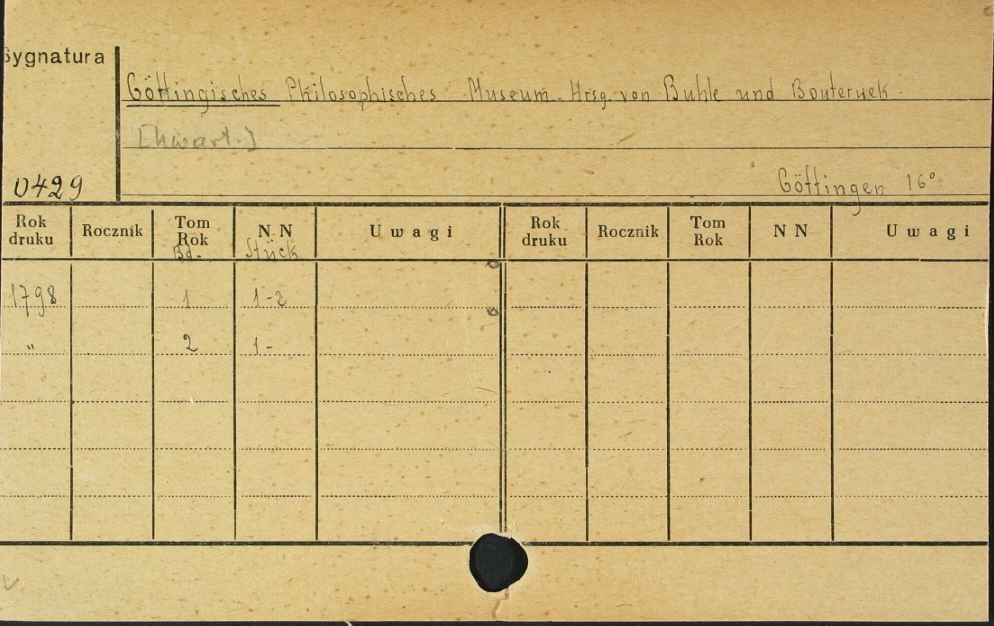 Sygnatura
Göttingisches Philosophisches Museum. Hrsg. von Buhle und Bouterwek.
[Kwart.]
0429
Göttingen 16°
Rok druku Rocznik Tom Rok NN Uwagi Rok druku Rocznik Tom Rok NN Uwagi
Bd. Stück
1798 1 1-2
" 2 1-